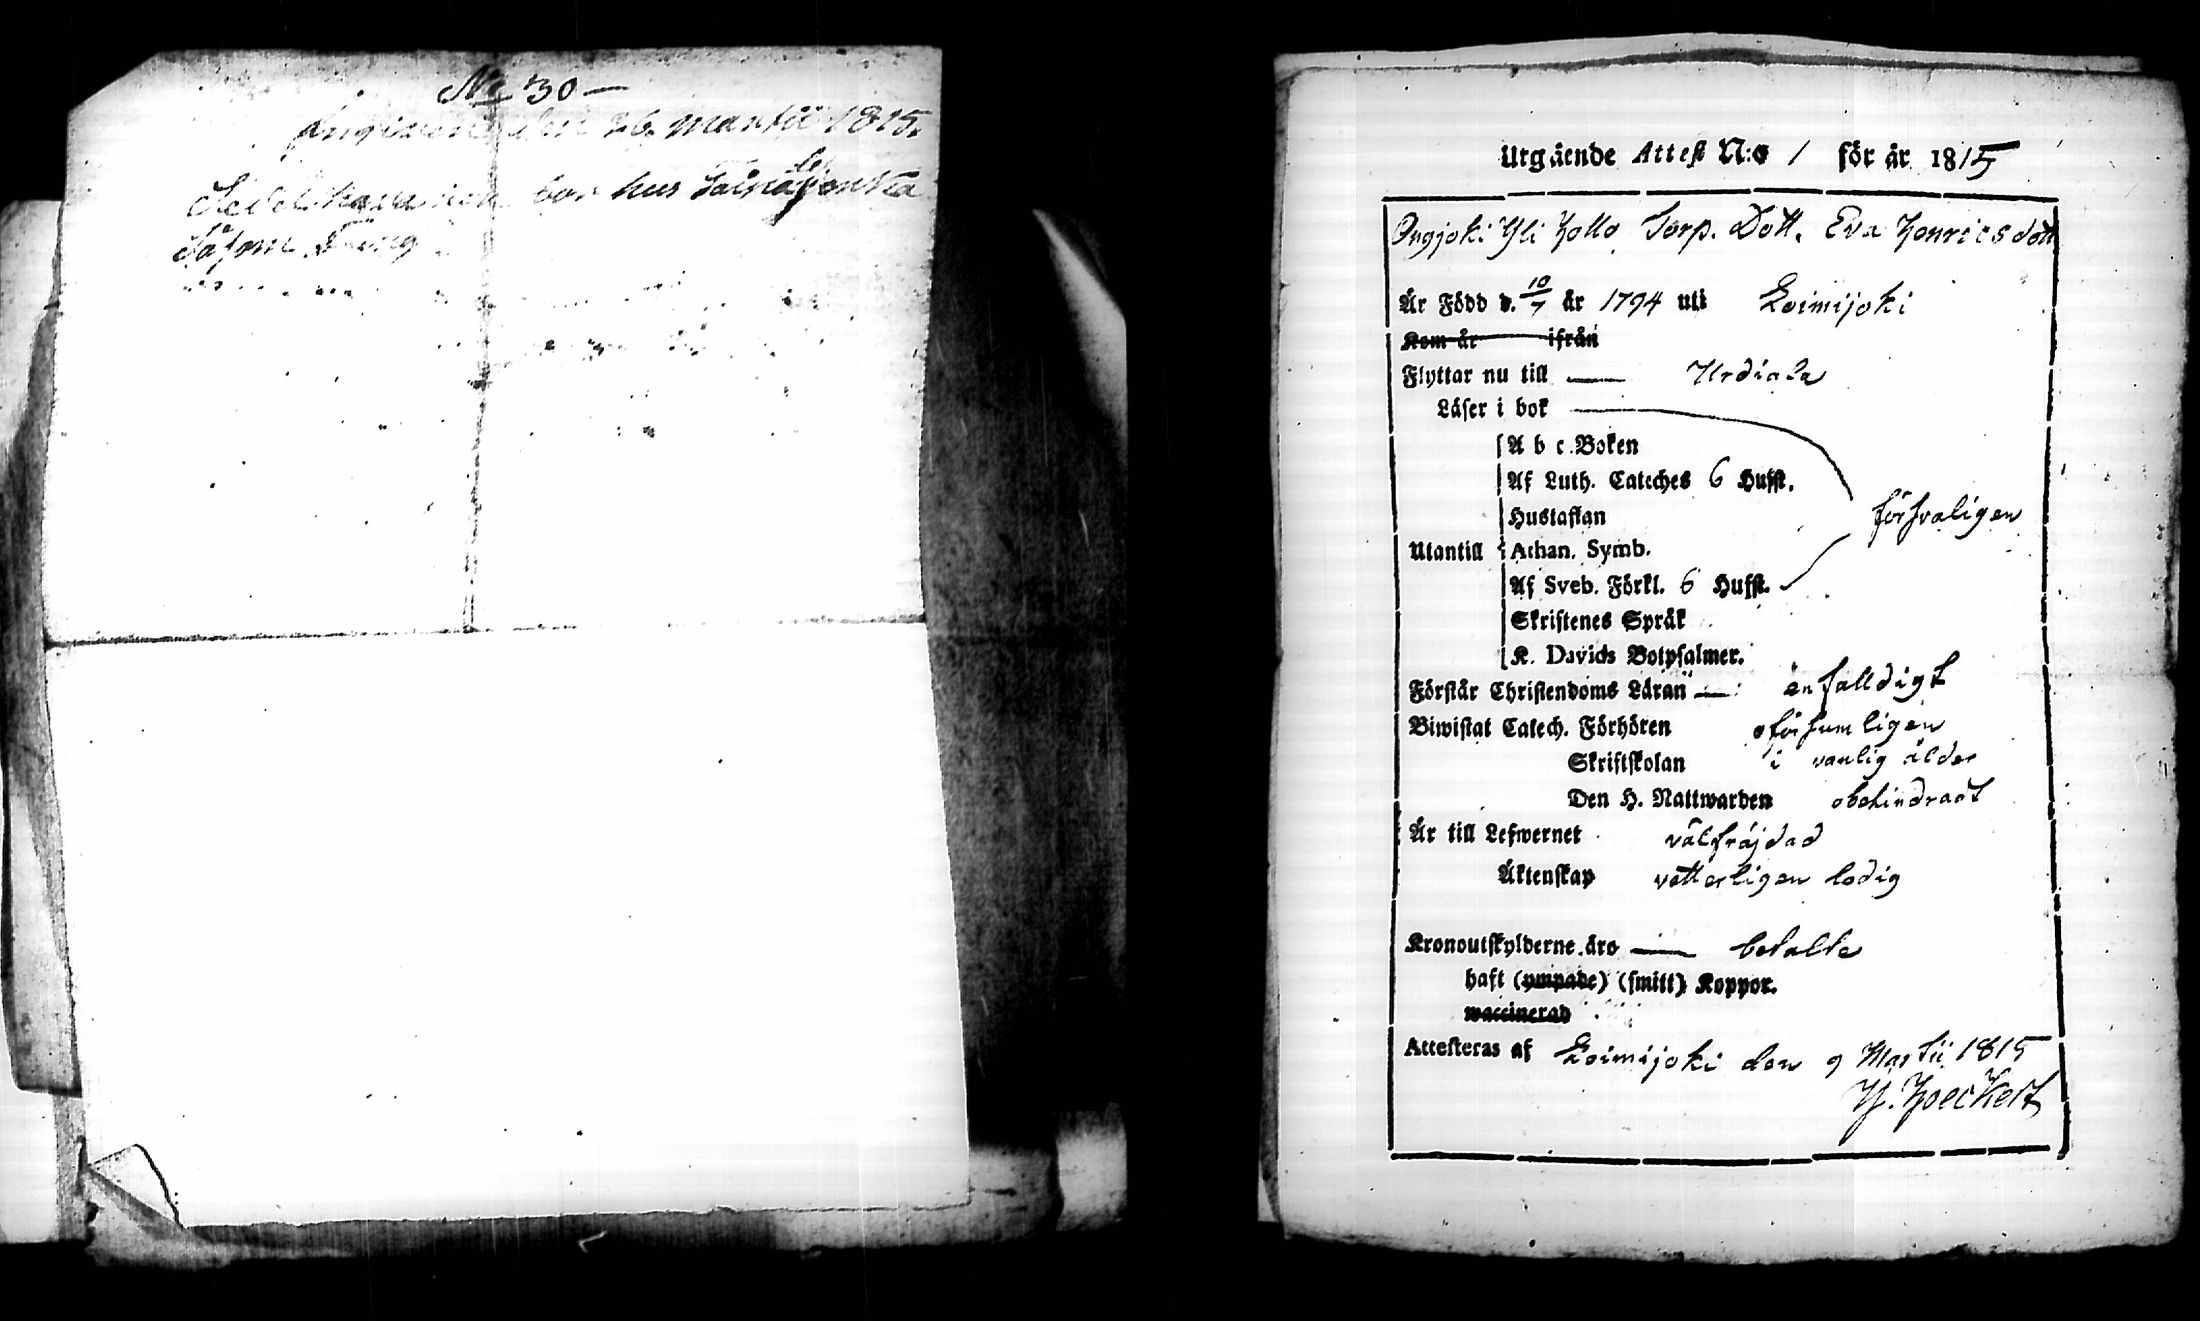 No 30 —
Ingiven den 26 Martii 1815.
Sedelhavaren bor hus
Utgående Attest N:o 1 för år 1815
Ongjoki Yli Hollo Torp. Dott. Eva Henricsdott
Är Född d. 10/7 år 1794 uti Loimijoki
Kom år ifrån
Flyttar nu till — Urdiala
Läser i bok
A b c Boken
Af Luth. Cateches 6 Hufst.
Hustaflan
försvaligen
Utantill Athan. Symb.
Af Sveb. Förkl. 6 Hufst.
Skriftenes Språk
K. Davids Botpsalmer.
Förstår Christendoms Läran — enfalldigt
Biwistat Catech. Förhören oförsumligen
Skriftskolan i vanlig ålder
Den H. Nattwarden obehindradt
Är till Lefwernet välfräjdad
Äktenskap vetterligen ledig
Kronoutskylderne äro — betalte
haft (ympade) (smitt) Koppor.
waccinerad
Attesteras af Loimijoki den 9 Martii 1815
H. Hoeckert